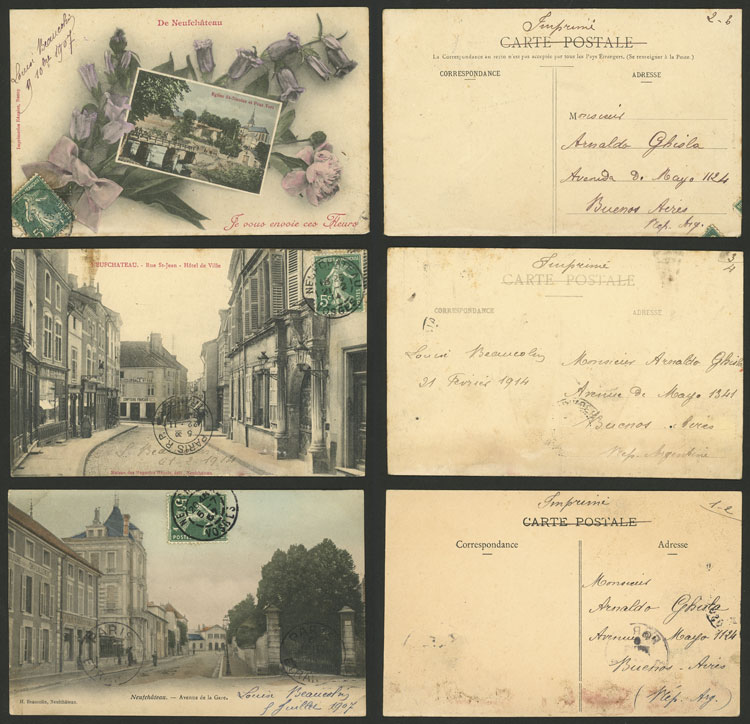 De Neufchâteau
Louis Beaucolin
9 1907
Imprimeries Réunies, Nancy
Je vous envoie ces Fleurs
Imprimé
2-6
CARTE POSTALE
La Correspondance au recto n'est pas acceptée par tous les Pays Étrangers. (Se renseigner à la Poste)
CORRESPONDANCE
ADRESSE
Monsieur
Arnaldo Ghisla
Avenida De Mayo 1124
Buenos Aires
Rep. Arg.
NEUFCHATEAU. - Rue St-Jean - Hôtel de Ville
5c
PARIS R.P.
Imprimé
3/4
CARTE POSTALE
CORRESPONDANCE
ADRESSE
Louis Beaucolin
21 Février 1914
Monsieur Arnaldo Ghisla
Avenue de Mayo 1341
Buenos-Aires
Rep. Argentine
POSTES
VOSGES
PARIS
H. Beaucolin, Neufchâteau.
Neufchâteau. — Avenue de la Gare.
Louis Beaucolin
5 Juillet 1907
Imprimé
1-2
CARTE POSTALE
Correspondance
Adresse
Monsieur
Arnaldo Ghisla
Avenue de Mayo 1124
Buenos-Aires
(Rép. Arg.)